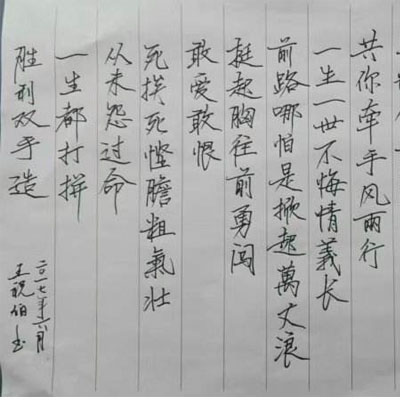 共你牵手风雨行
一生一世不悔情義长
前路哪怕是掀起萬丈浪
挺起胸往前勇闯
敢爱敢恨
死挨死悭膽粗氣壮
从未怨过命
一生都打拼
胜利双手造
二〇一七年六月